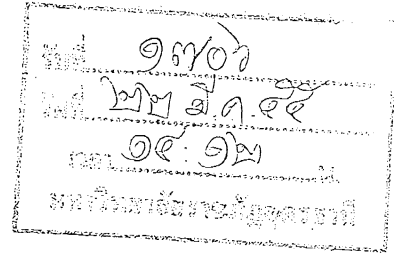 รับที่ ๑๗๐๖
วันที่ ๒๒ มี.ค. ๕๕
เวลา ๑๔:๑๒ น.
มหาวิทยาลัยราชภัฏอุดรธานี